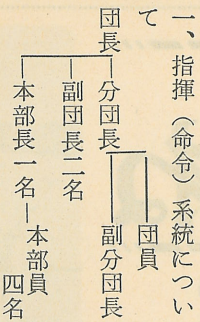 一、指揮（命令）系統につい
て
団長
分団長
団員
副分団長
副団長二名
本部長一名
本部員
四名